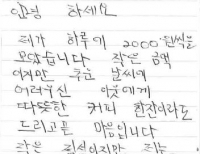 안녕 하세요
제가 하루에 2000원씩을
모았습니다 작은 금액
이지만 추운 날씨에
어려우신 이웃에게
따뜻한 커피 한잔이라도
드리고픈 마음입니다
작은 정성이지만